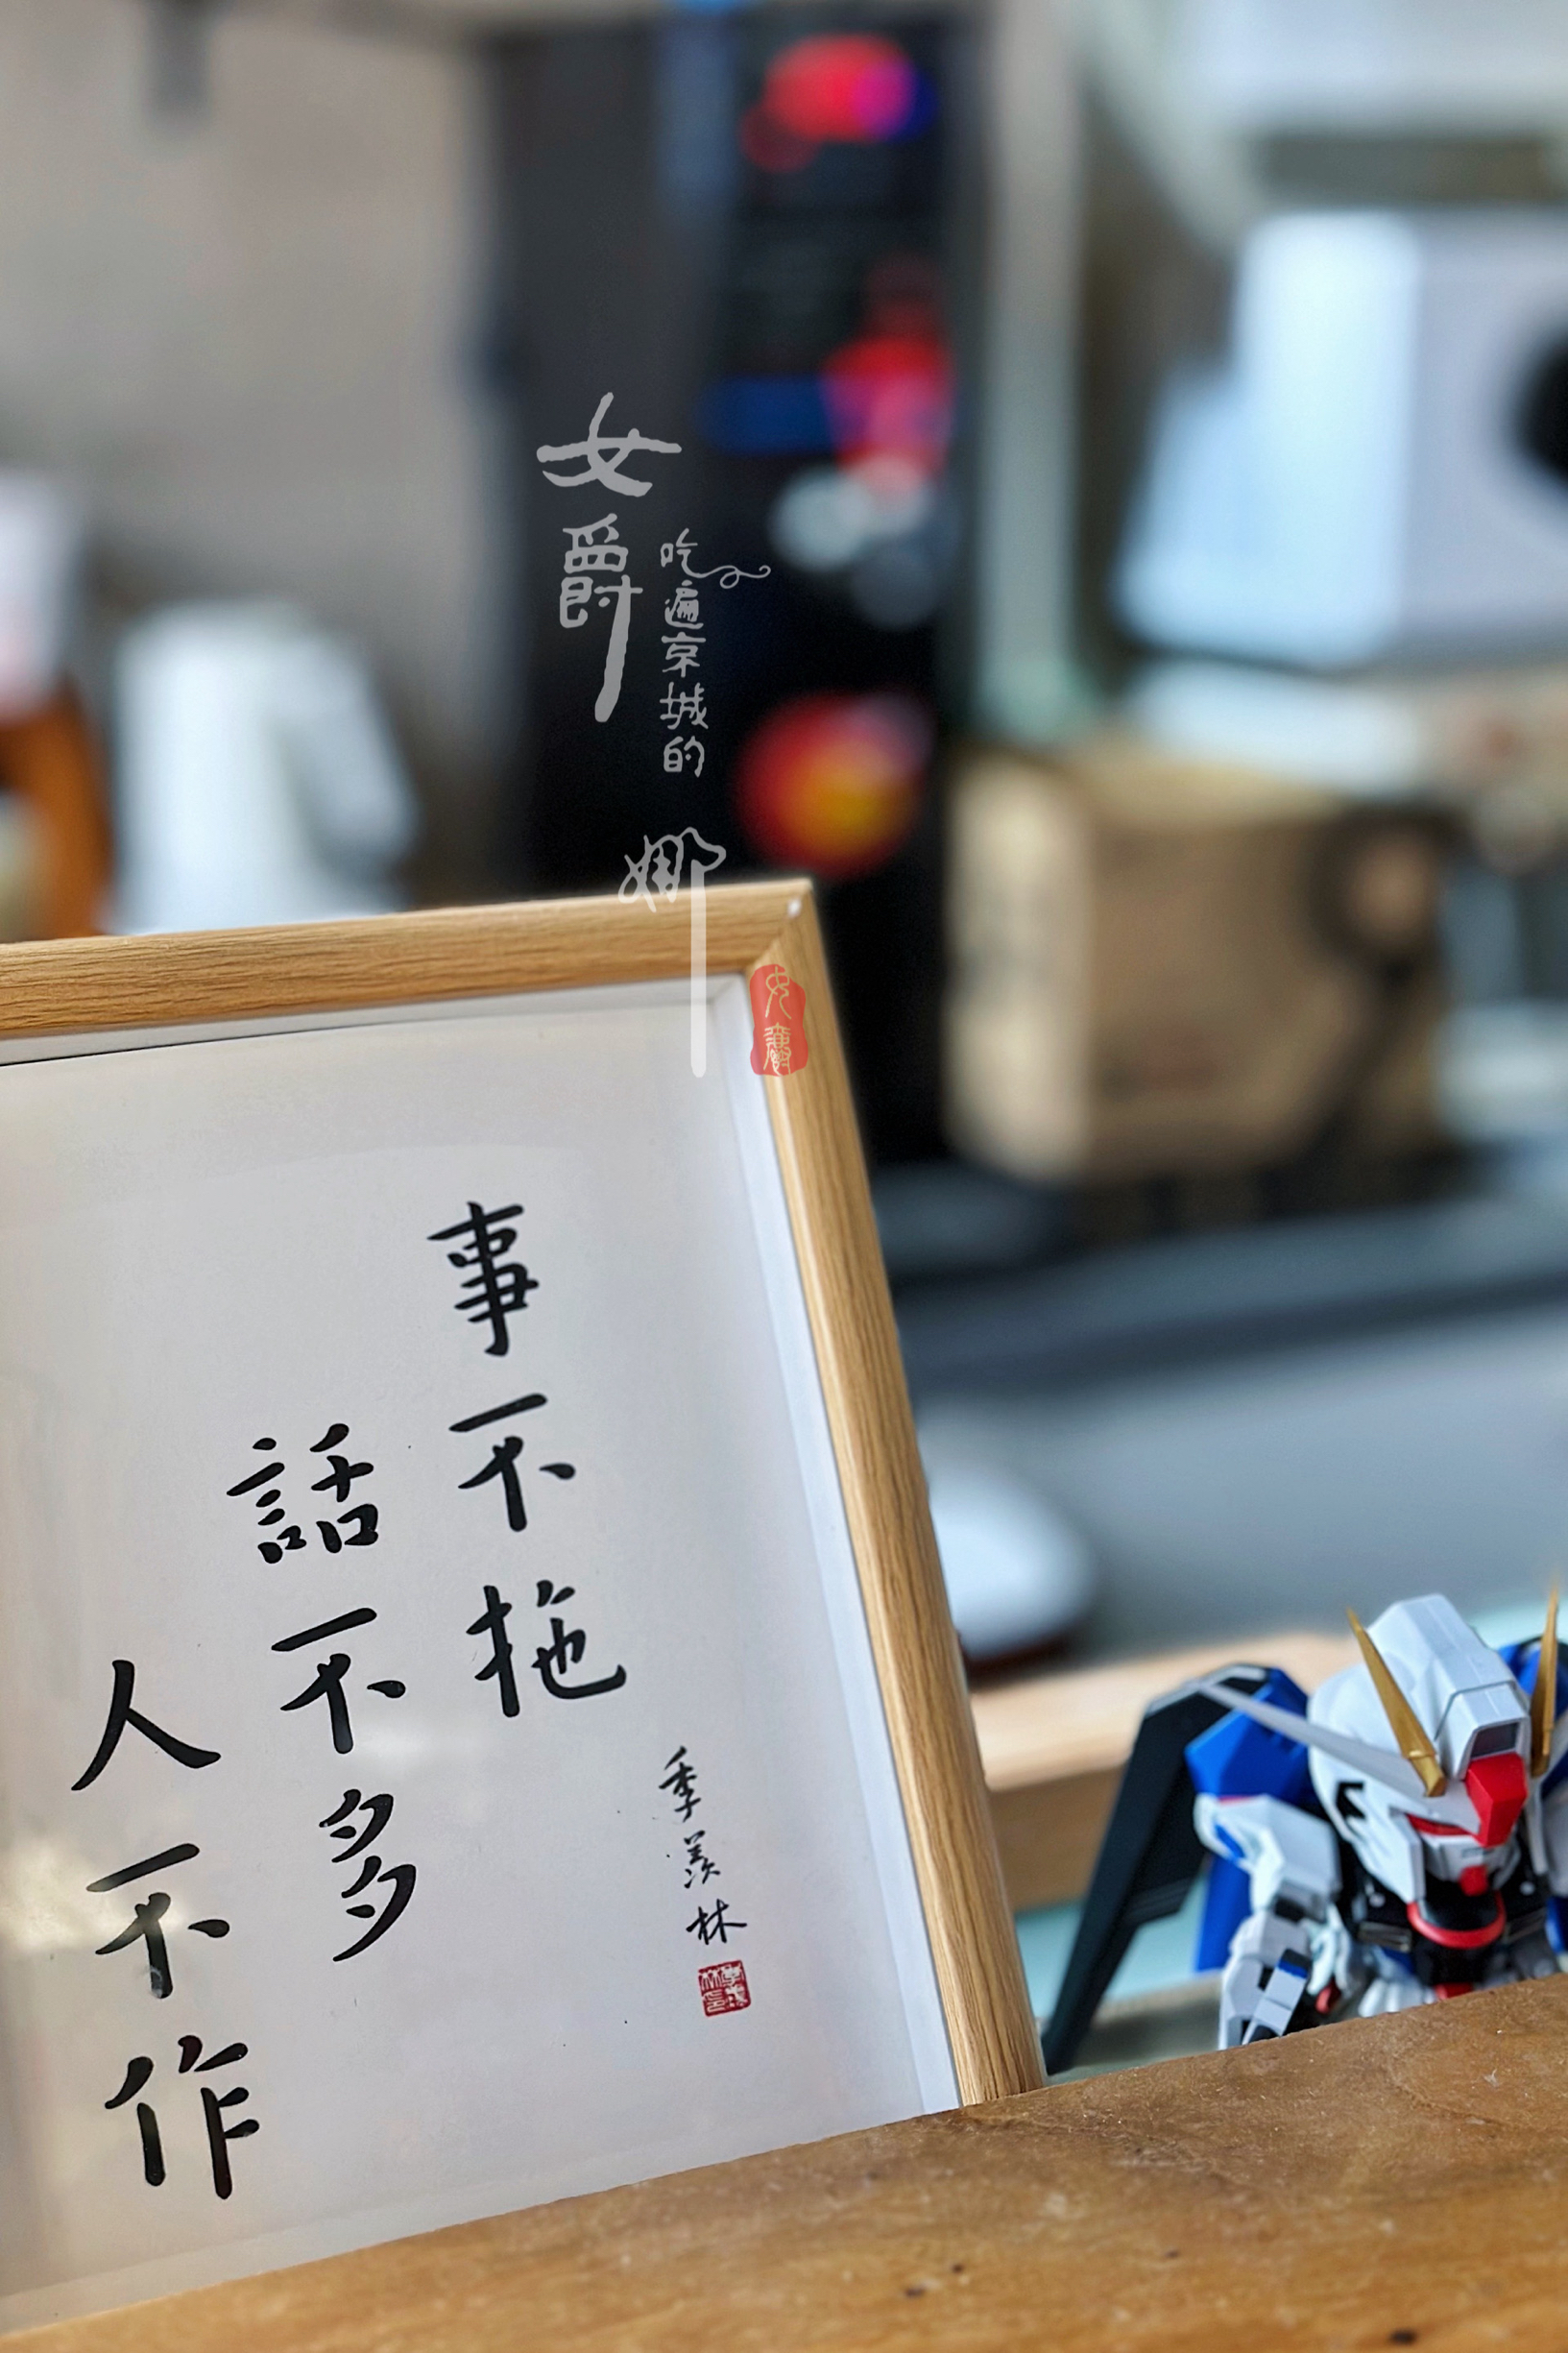 事不拖
話不多
人不作
季羨林
女爵
吃遍京城的
娜